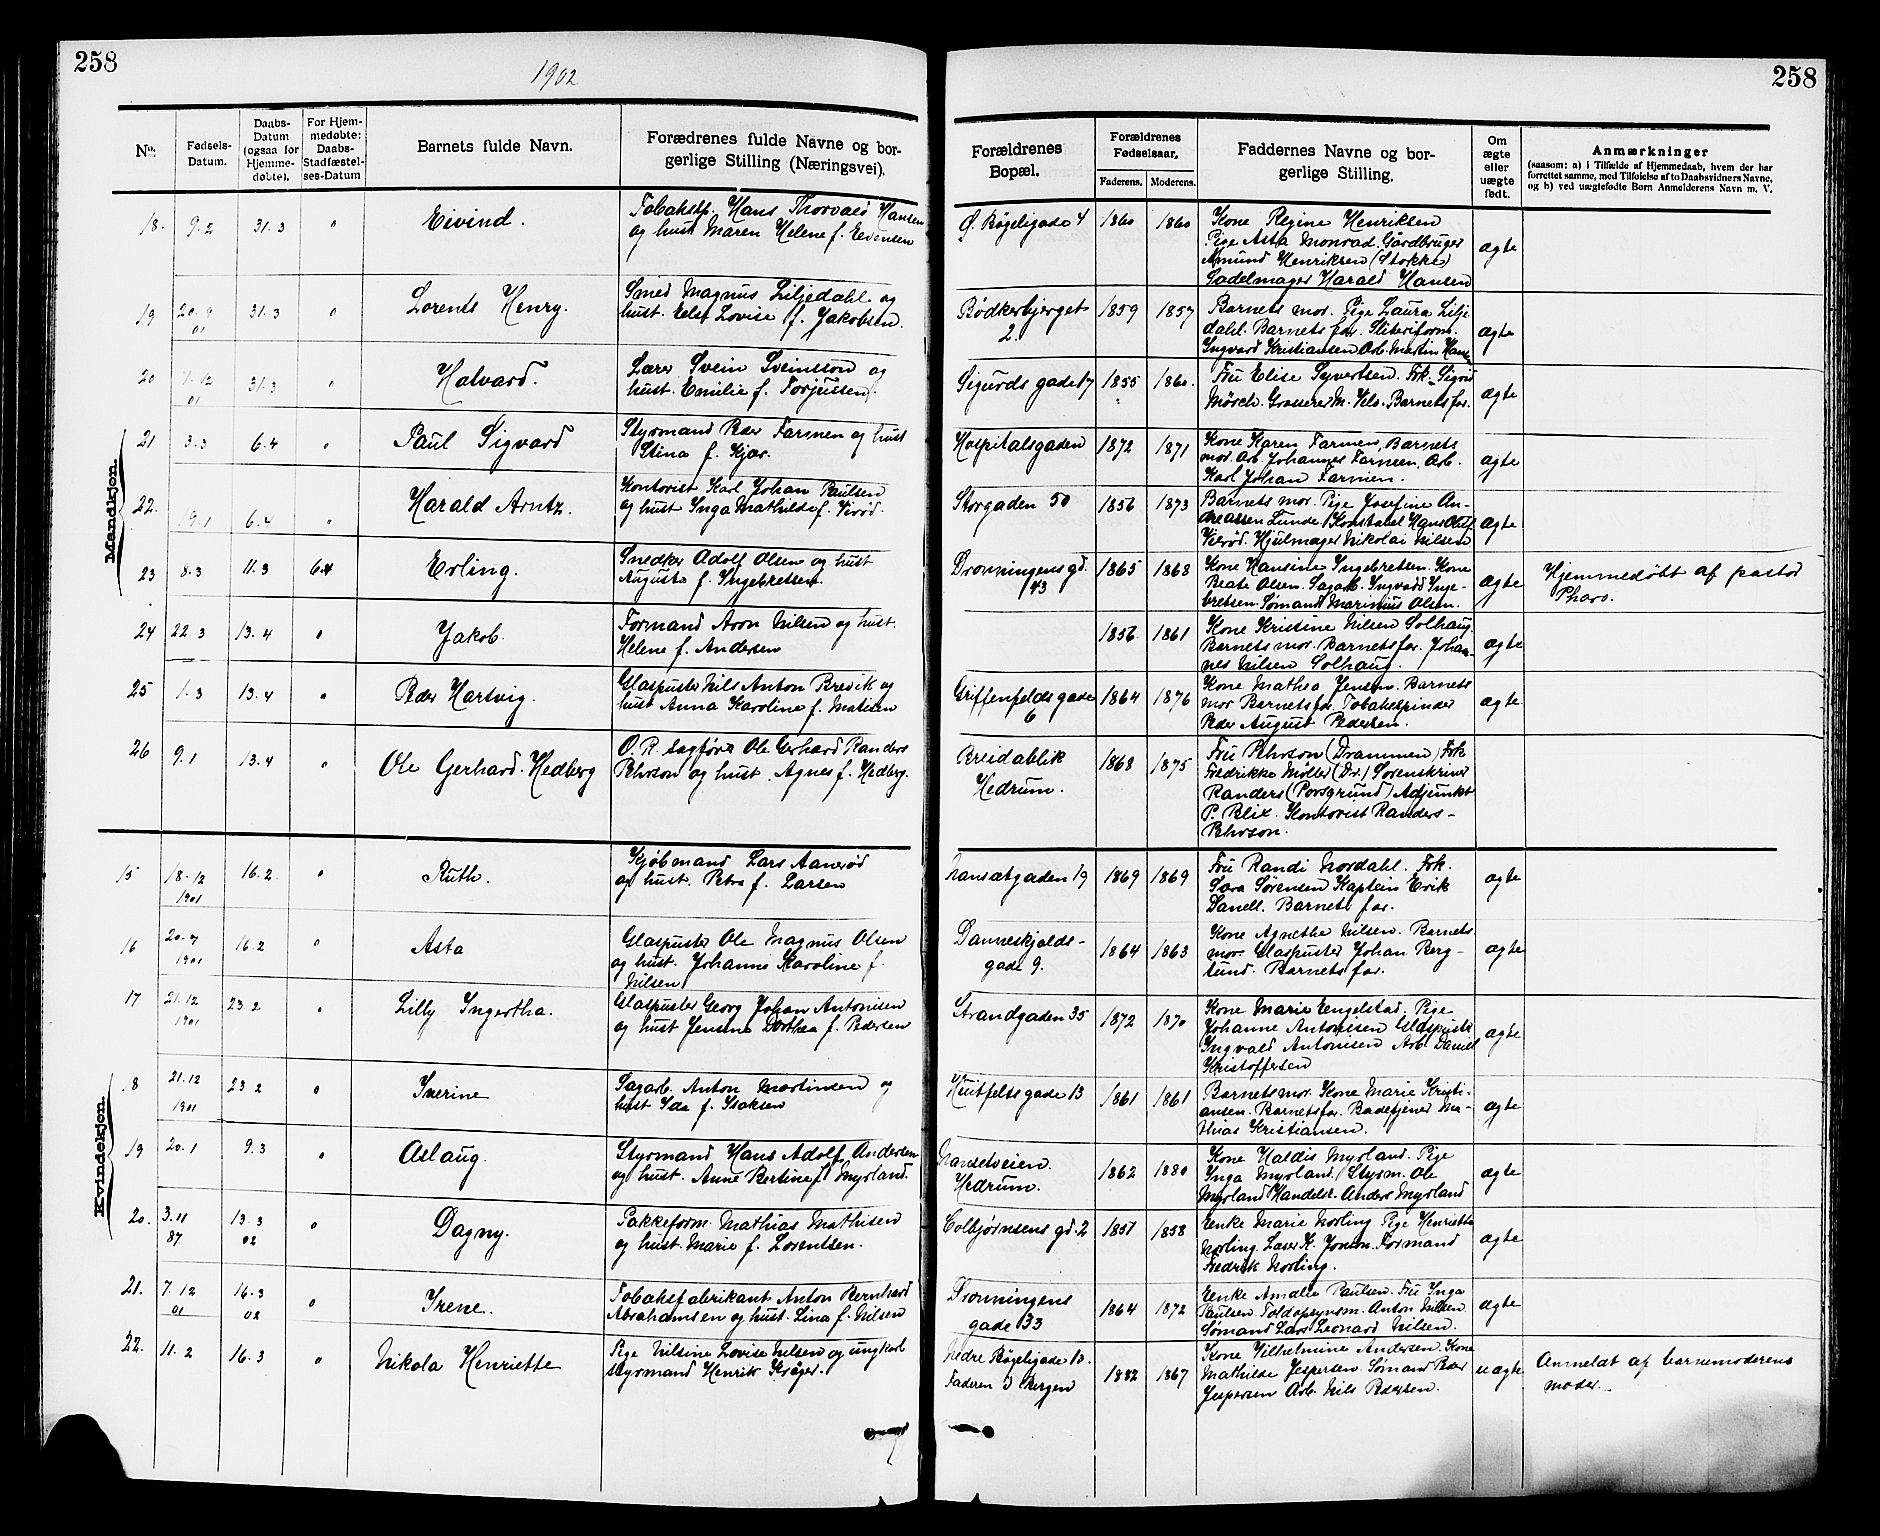 258
1902
258
No. Fødsels-Datum. Daabs-Datum (ogsaa for Hjemmedøbte). For Hjemmedøbte: Daabs-Stadfæstelses-Datum Barnets fulde Navn. Forældrenes fulde Navne og borgerlige Stilling (Næringsvei). Forældrenes Bopæl. Forældrenes Fødselsaar. Faderens. Moderens. Faddernes Navne og borgerlige Stilling. Om ægte eller uægte født. Anmærkninger
(saasom: a) i Tilfælde af Hjemmedaab, hvem der har
forrettet samme, med Tilføielse af to Daabsvidners Navne,
og b) ved uægtefødte Børn Anmelderens Navn m. V.
Mandkjøn.
18. 9.2 31.3 " Eivind. Tobakspd. Hans Thorvald Hansen
og hust Maren Helene f. Evensen
Ø. Bøgeligade 4 1860 1860 Kone Regine Henriksen
Pige Asta Monrad. Gårdbruger
Amund Henriksen (Stokke)
Sadelmager Harald Hansen
ægte
19 20.9 01 31.3 " Lorents Henry. Smed Magnus Liljedahl og
hust. Else Lovise f. Jakobsen.
Bødkerbjerget 2. 1859 1857 Barnets mor. Pige Laura Lilje
dahl. Barnets far. Sliberiform.
Ingvard Kristiansen Arb. Martin Hans
ægte
20 1.12 01 31.3 " Halvard. Lærer Svein Sveinsson og
hust. Emilie f. Torjussen.
Sigurds gade 17 1855 1860. Fru Elise Syvertsen. Frk. Sigrid
Mørch. Grosserer M. Vels. Barnets far.
ægte
21 3.3 6.4 " Paul Sigvard Styrmand Peder Farmen og hust
Stina f. Kjær.
Hospitalsgaden 1872 1871 Kone Karen Farmen, Barnets
mor. Arb. Johannes Farmen, Arb.
Karl Johan Farmen.
ægte
22. 19.1 6.4 " Harald Arntz. Kontorist Karl Johan Paulsen
og hust Inga Mathilde f. Virød.
Storgaden 50 1856 1873 Barnets mor. Pige Josefine An-
dreassen Lunde Konstabel Hans Oluf
Virød. Hjulmager Nikolai Nilsen
ægte
23 8.3 11.3 6.4 Erling. Snedker Adolf Olsen og hust
Augusta f. Ingebretsen.
Dronningens gd. 43 1865 1868 Kone Hansine Ingebretsen. Kone
Beate Olsen. Sagarb. Ingvald Inge-
bretsen. Sømand Marinius Olsen.
ægte Hjemmedøbt af pastor
Pharo.
24 22.3 13.4 " Jakob. Formand Aron Nilsen og hust.
Helene f. Andersen
1856. 1861 Kone Kristine Nilsen Solhaug.
Barnets mor. Barnets far. Johan-
nes Nilsen Solhaug.
ægte
25 1.3 13.4 " Peder Hartvig. Glaspuster Nils Anton Brevik og
hust Anna Karoline f. Matisen
Griffenfelds gade 6 1864 1876 Kone Mathea Jensen. Barnets
mor Barnets far. Tobakspinder
Peder August Pedersen.
ægte
26 9.1 13.4 " Ole Gerhard Hedberg O. R. sagfører Ole Gerhard Randers
Pehrson og hust. Agnes f. Hedberg.
Breidablik
Hedrum. 1868 1875 Fru Pehrson (Drammen) Frk
Fredrikke Møller (Dr.) Sorenskriver
Randers (Porsgrund) Adjunkt
P. Blix. Kontorist Randers-
Pehrson.
ægte
Kvindekjøn.
15 18.12 1901 16.2. " Ruth. Kjøbmand Lars Aanerød
og hust. Petra f. Larsen
Nansetgaden 19 1869 1869 Fru Randi Nordahl. Frk.
Sara Sørensen Kaptein Erik
Danell. Barnets far.
ægte
16 20.7 1901 16.2 " Asta Glaspuster Ole Magnus Olsen
og hust. Johanne Karoline f.
Nilsen
Danneskjolds-
gade 9. 1864 1863 Kone Agnethe Nilsen. Barnets
mor. Glaspuster Johan Berg-
lund. Barnets far.
ægte
17 21.12 1901 23.2 " Lilly Ingertha. Glaspuster Georg Johan Antonisen
og hust Jensine Dorthea f. Pedersen
Strandgaden 35 1872 1870 Kone Marie Engelstad. Pige
Johanne Antonisen Glaspust.
Ingvald Antonisen Arb. Daniel
Kristoffersen
ægte
.8 21.12 1901 23.2 " Iverine Sagarb. Anton Martinsen og
hust Ida f. Isaksen
Huitfelts gade 13 1861 1861 Barnets mor. Kone Marie Kristi-
ansen. Barnets far. Badetjener Ma-
thias Kristiansen.
ægte
19 20.1 9.3 " Aslaug. Styrmand Hans Adolf Andersen
og hust. Anne Bertine f. Myrland.
Nansetveien.
Hedrum. 1862 1880 Kone Haldis Myrland. Pige
Inga Myrland. Styrm. Ole
Myrland Handelsr. Anders Myrland
ægte
20. 3.11 87 13.3 02 " Dagny. Pakkeform. Mathias Mathisen
og hust. Marie f. Lorentsen.
Colbjørnsens gd. 2 1851 1858 Enke Marie Norling Pige Henriette
Norling. Laser K. Jonson. Formand
Fredrik Norling.
ægte
21. 7.12 01 16.3 02 " Irene. Tobaksfabrikant Anton Bernhard
Abrahamsen og hust. Lina f. Nilsen
Dronningens
gade 33 1864 1872 Enke Amalie Paulsen. Fru Inga
Paulsen. Toldopsynsm. Anton Nilsen.
Sømand Lars Leonard Nilsen.
ægte
22. 11.2 16.3 " Nikola Henriette Pige Nilsine Lovise Nilsen og ungkarl
styrmand Henrik Krøger.
Nedre Bøgeligade 13.
Faderen i Bergen 1882 1867 Kone Vilhelmine Andersen. Kone
Mathilde Jespersen. Sømand Peder
Jespersen Arb. Nils Pedersen.
uægte Anmeldt af barnemoderens
moder.